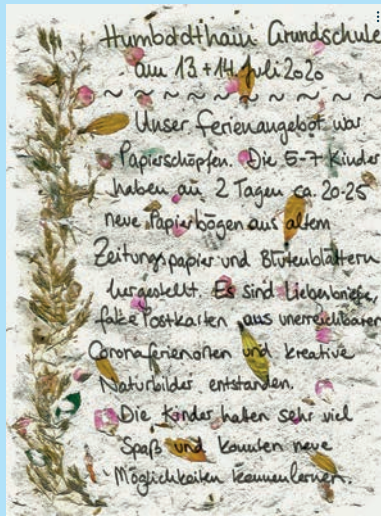 Humboldthain Grundschule
am 13.+14. Juli 2020
Unser Ferienangebot war
Papierschöpfen. Die 5-7 Kinder
haben an 2 Tagen ca. 20-25
neue Papierbögen aus altem
Zeitungspapier und Blütenblättern
hergestellt. Es sind Liebesbriefe,
fake Postkarten aus unerreichbaren
Coronaferienorten und kreative
Naturbilder entstanden.
Die Kinder hatten sehr viel
Spaß und konnten neue
Möglichkeiten kennenlernen.